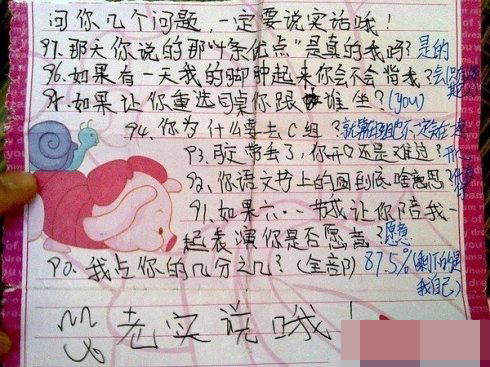 问你几个问题，一定要说实话哦！
97.那天你说的那"4条优点"是真的我吗？是的
96.如果有一天我的脚肿起来你会不会背我？会
95.如果让你重选同桌你跟谁坐？(you)
94.你为什么要去C组？
93.

92.你语文书上的圆到底啥意思？
91.如果六·一节或让你陪我一
起表演你是否愿意？愿意
90.我占你的几分之几？(全部) 87.5%(剩下的是
我自己)
老实说哦！